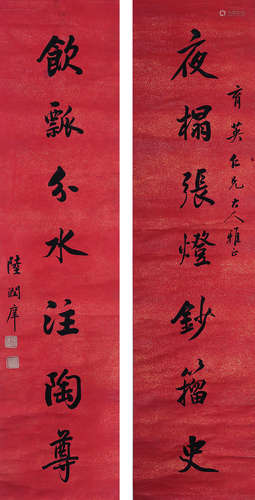 夜榻張燈鈔籀史
育英仁兄大人雅正
飲瓢分水注陶尊
陸潤庠